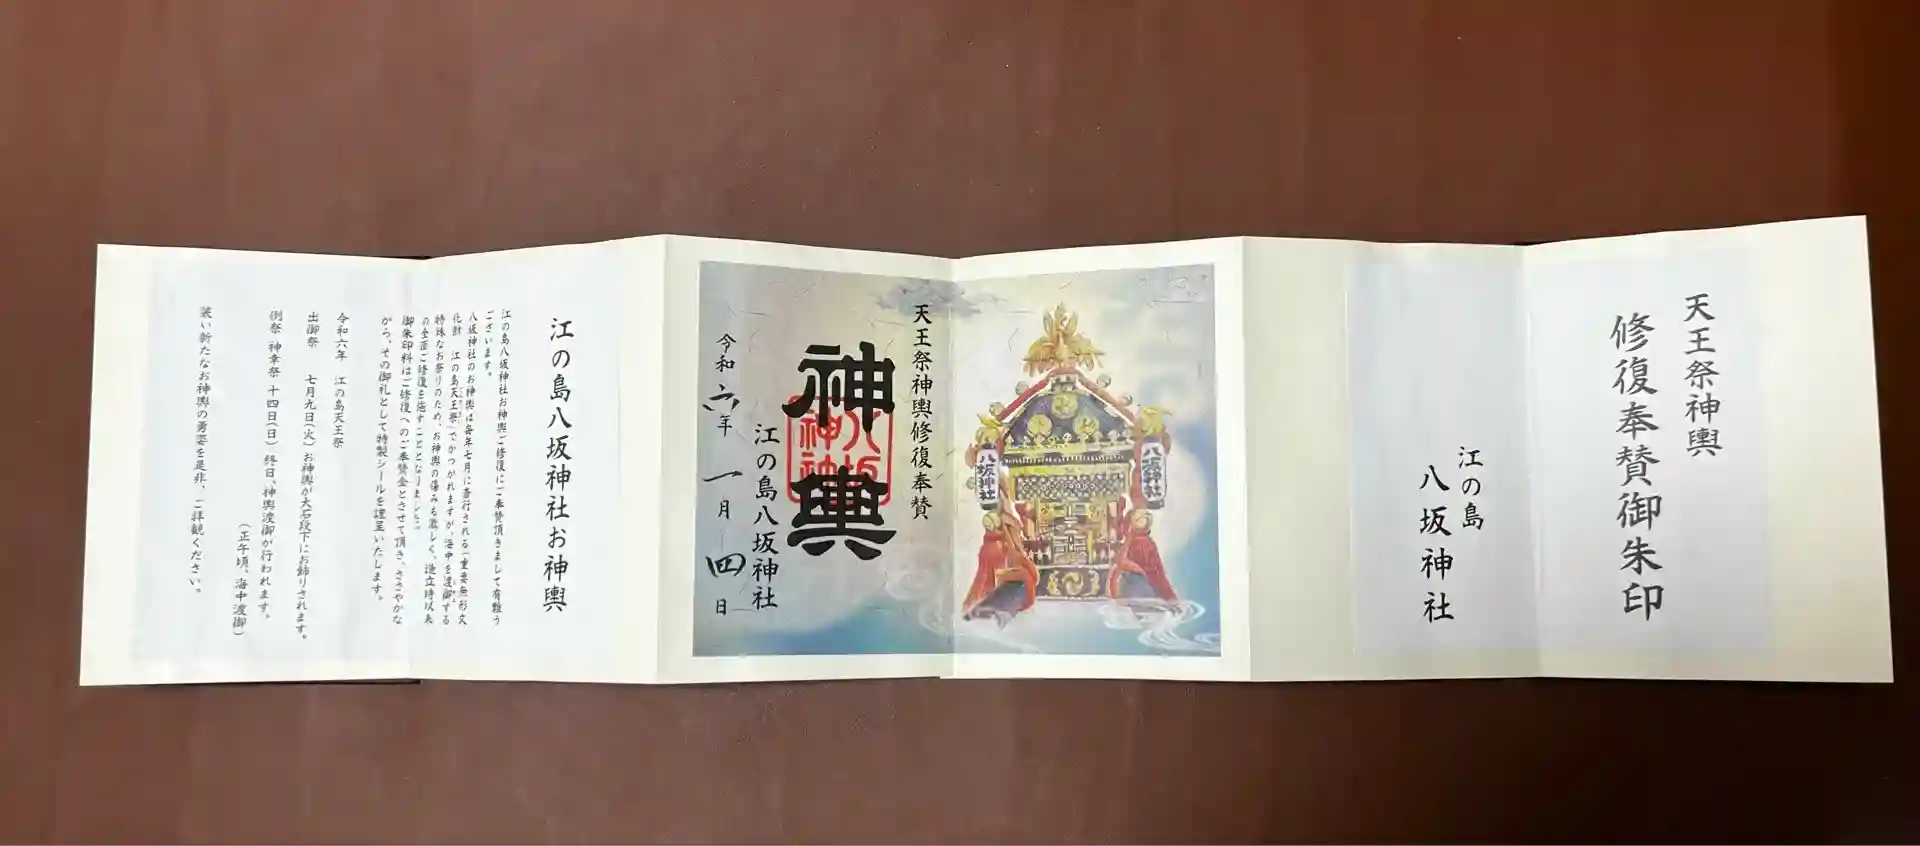 天王祭神輿
修復奉賛御朱印
江の島
八坂神社
八坂神社
八坂神社
天王祭神輿修復奉賛
神輿
八坂
神社
江の島八坂神社
令和六年一月四日
江の島八坂神社お神輿
江の島八坂神社お神輿ご修復にご奉賛頂きまして有難う
ございます。
八坂神社のお神輿は毎年七月に斎行される「重要無形文
化財 江の島天王祭」でかつがれますが、海中を渡御する
特殊なお祭りのため、お神輿の傷みも激しく、造立時以来
の全面ご修復を施すこととなりました。
御朱印料はご修復へのご奉賛金とさせて頂き、ささやかな
がら、その御礼として特製シールを謹呈いたします。
令和六年 江の島天王祭
出御祭 七月九日(火)お神輿が大石段下にお飾りされます。
例祭 神幸祭 十四日(日)終日、神輿渡御が行われます。
(正午頃、海中渡御)
装い新たなお神輿の勇姿を是非、ご拝観ください。